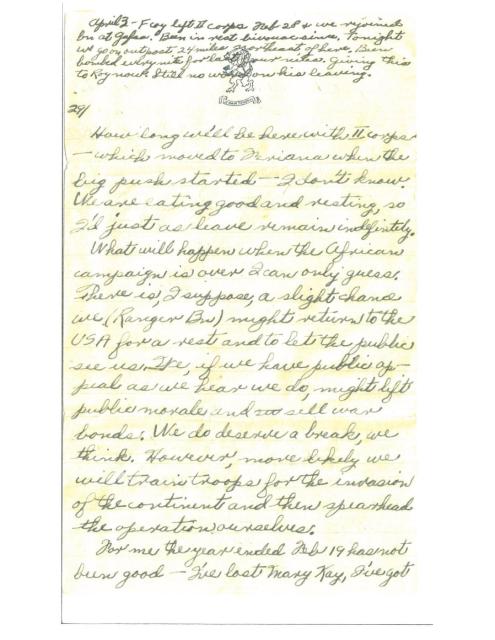 April 3 - Fay left II corps Feb 28 & we rejoined
bn at Gafsa. Been in rest bivouac since. Tonight
we go on outpost 24 miles northeast of here. Been
bombed every nite for last four nites. Giving this
to Roy now. Still no word on his leaving.
29/
How long we'll be here with II corps
- which moved to Feriana when the
big push started - I don't know.
We are eating good and resting, so
I'd just as leave remain indefintely.
What will happen when the African
campaign is over I can only guess.
There is, I suppose, a slight chance
we (Ranger Bn) might return to the
USA for a rest and to let the public
see us. We, if we have public ap-
peal as we hear we do, might lift
public morale and sell war
bonds. We do deserve a break, we
think. However, more likely we
will train troops for the invasion
of the continent and then spearhead
the operation ourselves.
For me the year ended Feb 19 has not
been good - I've lost Mary Kay, I've got